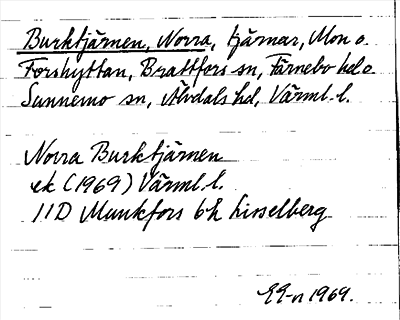 Burktjärnen, Norra, tjärnar, Mon o.
Forshyttan, Brattfors sn, Färnebo hd o.
Sunnemo sn, Älvdals hd, Värml. l.
Norra Burktjärnen
ek (1969) Värml. l.
11D Munkfors 6h Lisselberg
1969.